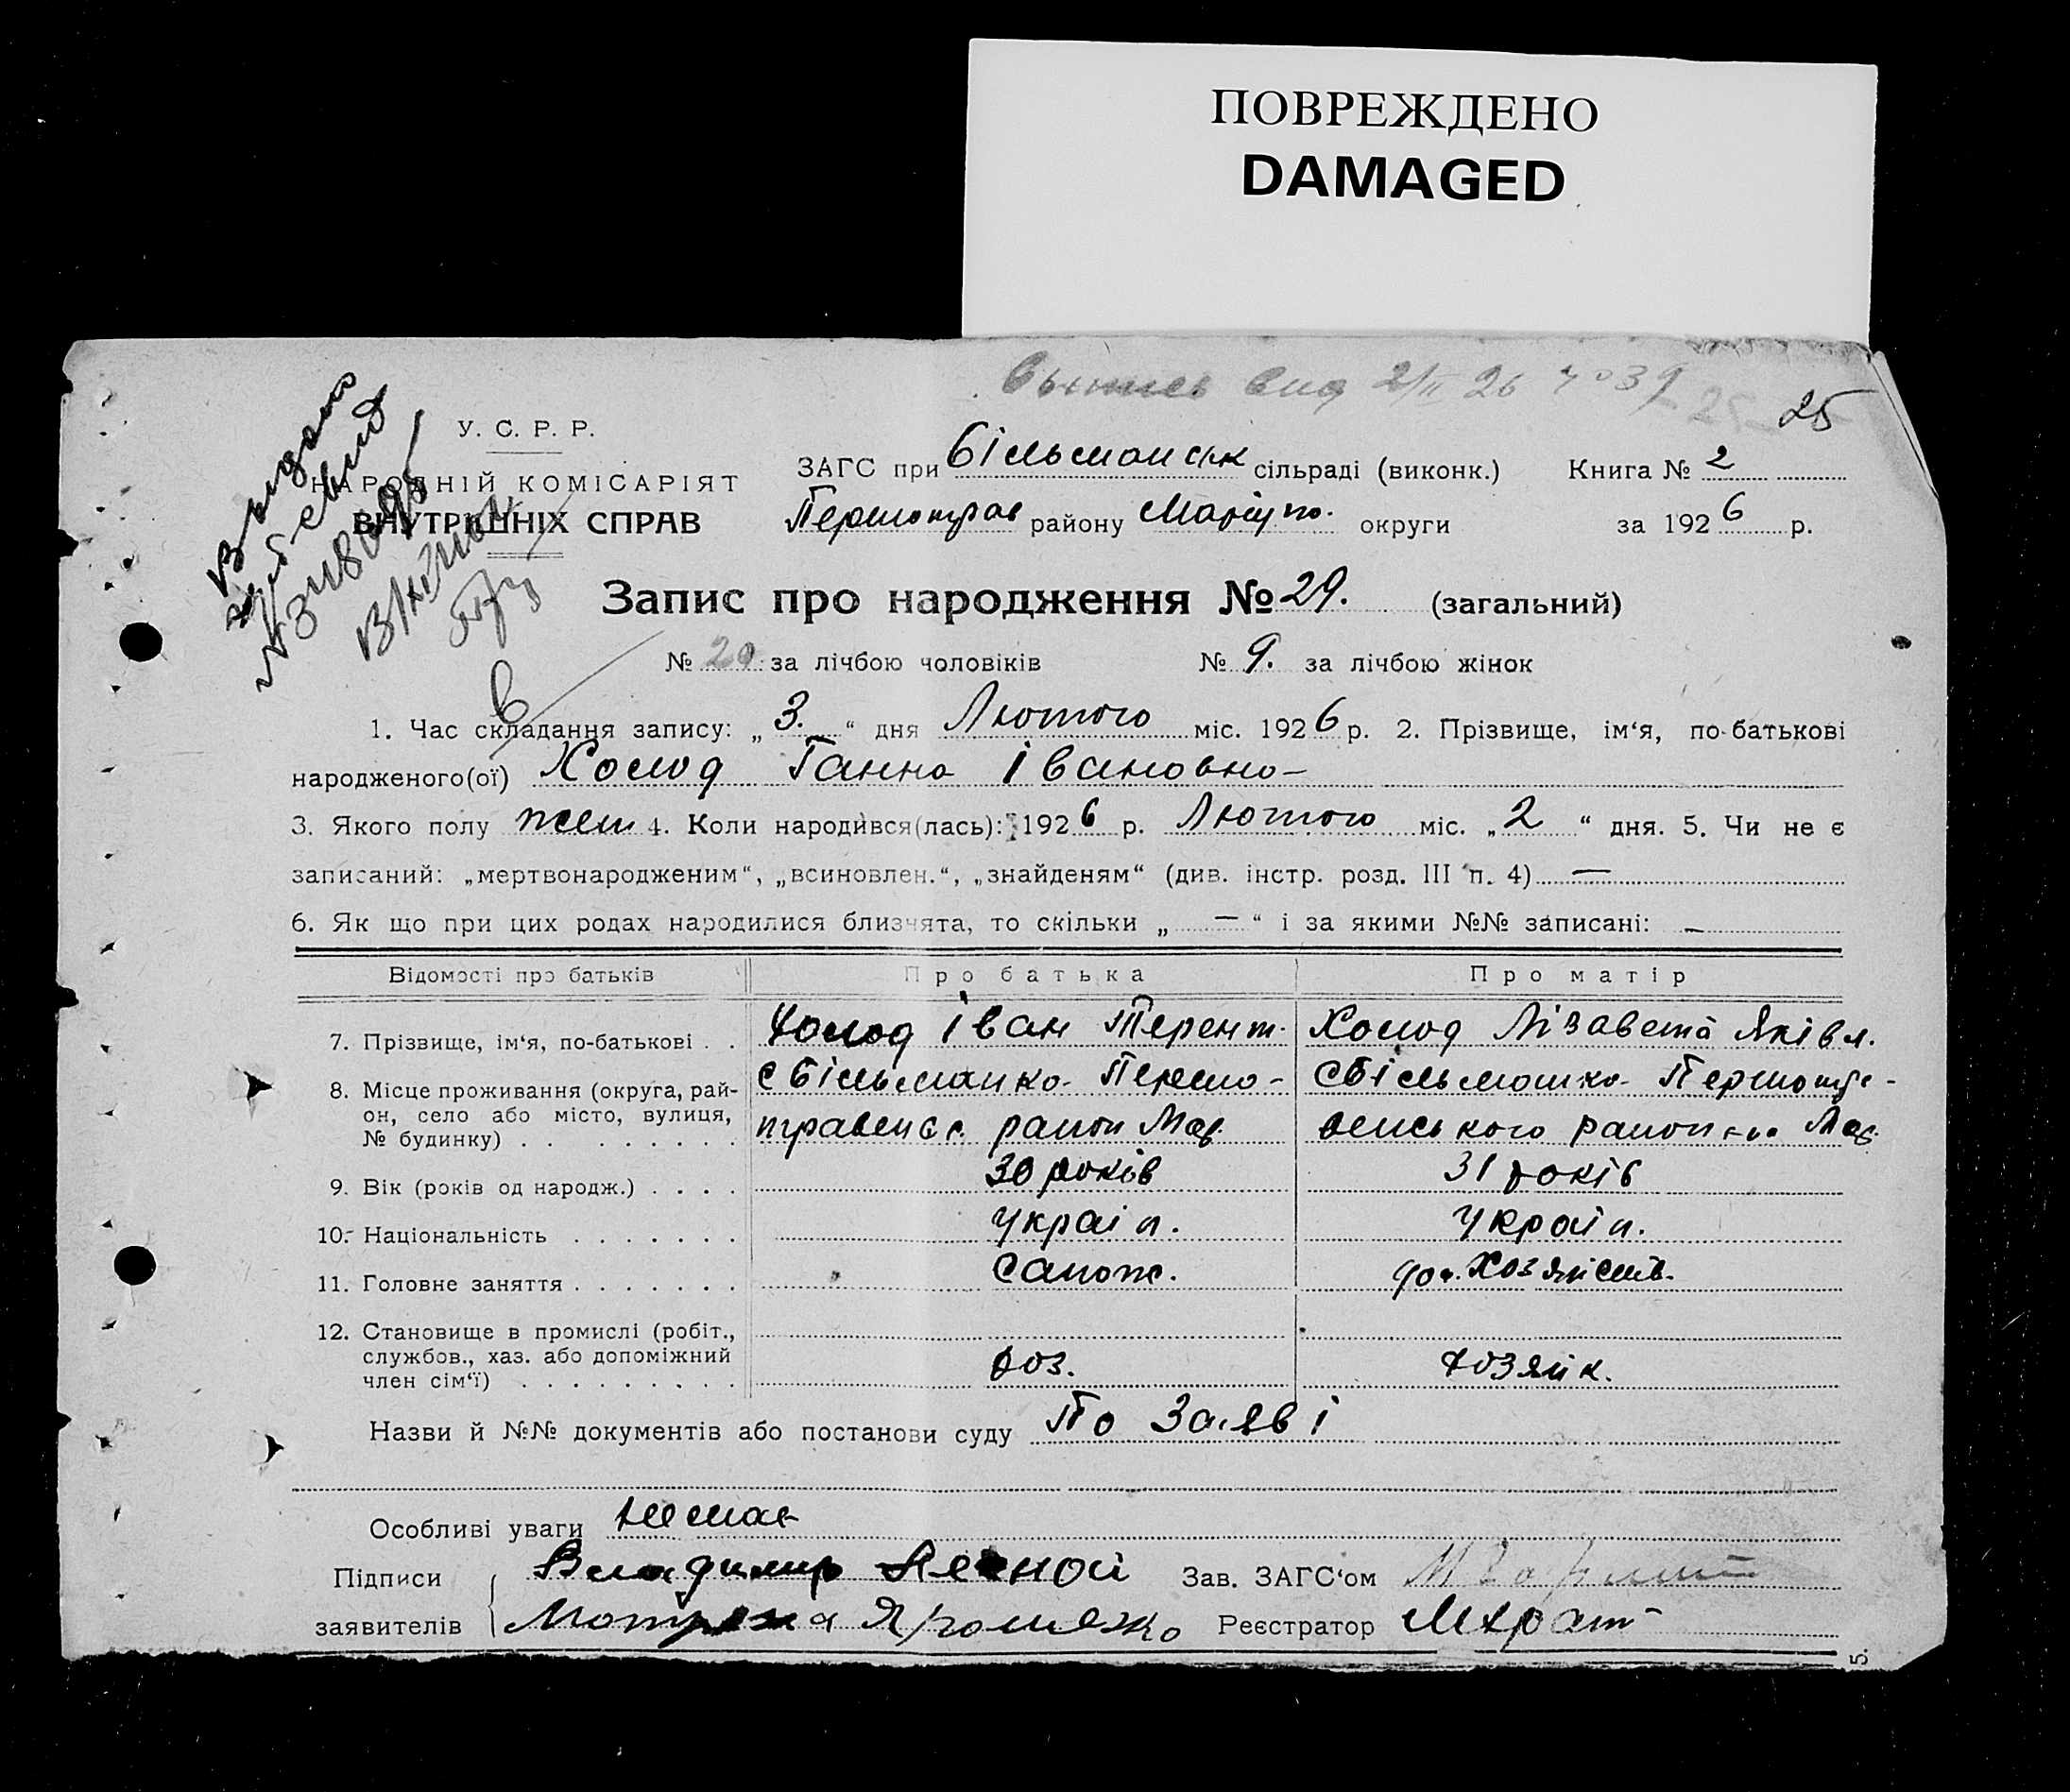 ПОВРЕЖДЕНО
DAMAGED
вид 2/II 26 № 39
25
У. С. Р. Р.
НАРОДНІЙ КОМІСАРІЯТ
ВНУТРІШНІХ СПРАВ
Видано
ЗАГС при Більманськ сільраді (виконк.) Книга № 2
Першотрав району Маріуп. округи за 1926 р.
Запис про народження № 29. (загальний)
№ 20 за лічбою чоловіків № 9. за лічбою жінок
1. Час складання запису: „3.“ дня Лютого міс. 1926 р. 2. Прізвище, ім‘я, по-батькові
народженого(ої) Холод Ганна Івановна
3. Якого полу жен 4. Коли народився(лась): 1926 р. Лютого міс. „2“ дня. 5. Чи не є
записаний: „мертвонародженим“, „всиновлен.“, „знайденям“ (див. інстр. розд. III п. 4) —
6. Як що при цих родах народилися близчята, то скільки „—“ і за якими №№ записані: —
Відомості про батьків Про батька Про матір
7. Прізвище, ім‘я, по-батькові . . Холод Іван Терент. Холод Лізавета Яківл.
8. Місце проживання (округа, рай- с Більманка Першо- с Більманка Першотра-
он, село або місто, вулиця, № будинку) . . травенск. район Мар. венського району Мар.
9. Вік (років од народж.) . . . . 30 років 31 років
10. Національність . . . . . . . Україн. Україн.
11. Головне заняття . . . . . . . Сапож. дом. Хозяйств.
12. Становище в промислі (робіт.,
службов., хаз. або допоміжний
член сім‘ї) . . . . . . . . . хоз. хозяйк.
Назви й №№ документів або постанови суду По Заяві
Особливі уваги немає
Підписи Владимир Зав. ЗАГС‘ом
заявителів Мотрена Реєстратор
5.